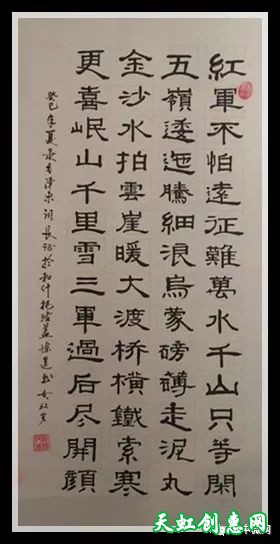 紅軍不怕遠征難萬水千山只等閑
五嶺逶迤騰細浪烏蒙磅礴走泥丸
金沙水拍雲崖暖大渡桥橫鐵索寒
更喜岷山千里雪三軍過后尽開顏
癸巳年夏录毛澤東詞長征於和什托洛盖
天虹创惠网